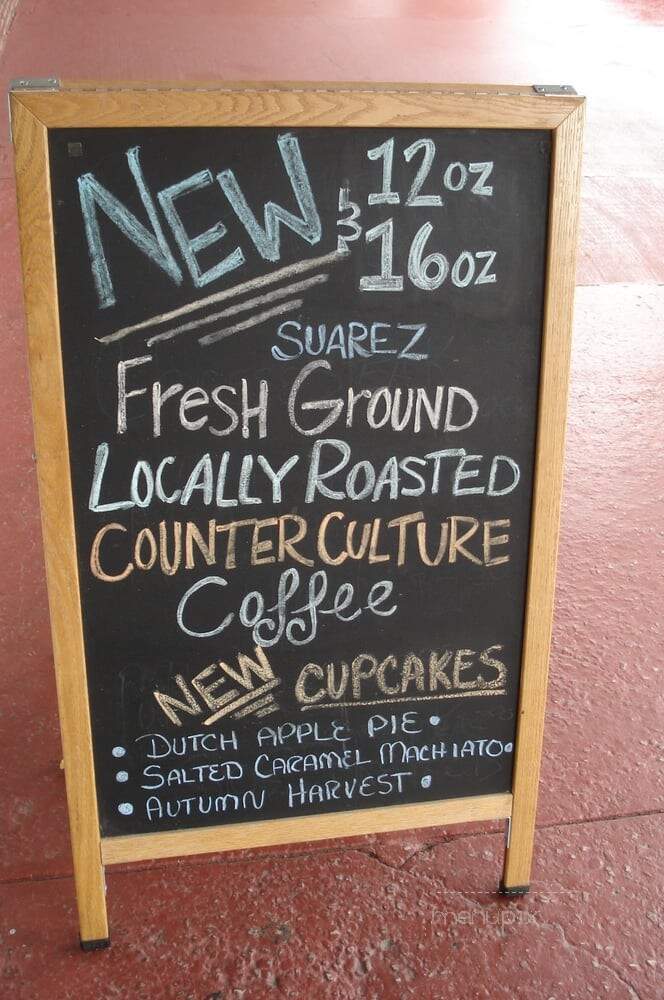 NEW
12oz
& 16oz
SUAREZ
FresH GrOUND
LOCALLY ROASTED
COUNTER CULTURE
Coffee
NEW CUPCAKES
• DUTCH APPLE PIE •
• SALTED CARAMEL MACHIATO •
• AUTUMN HARVEST •